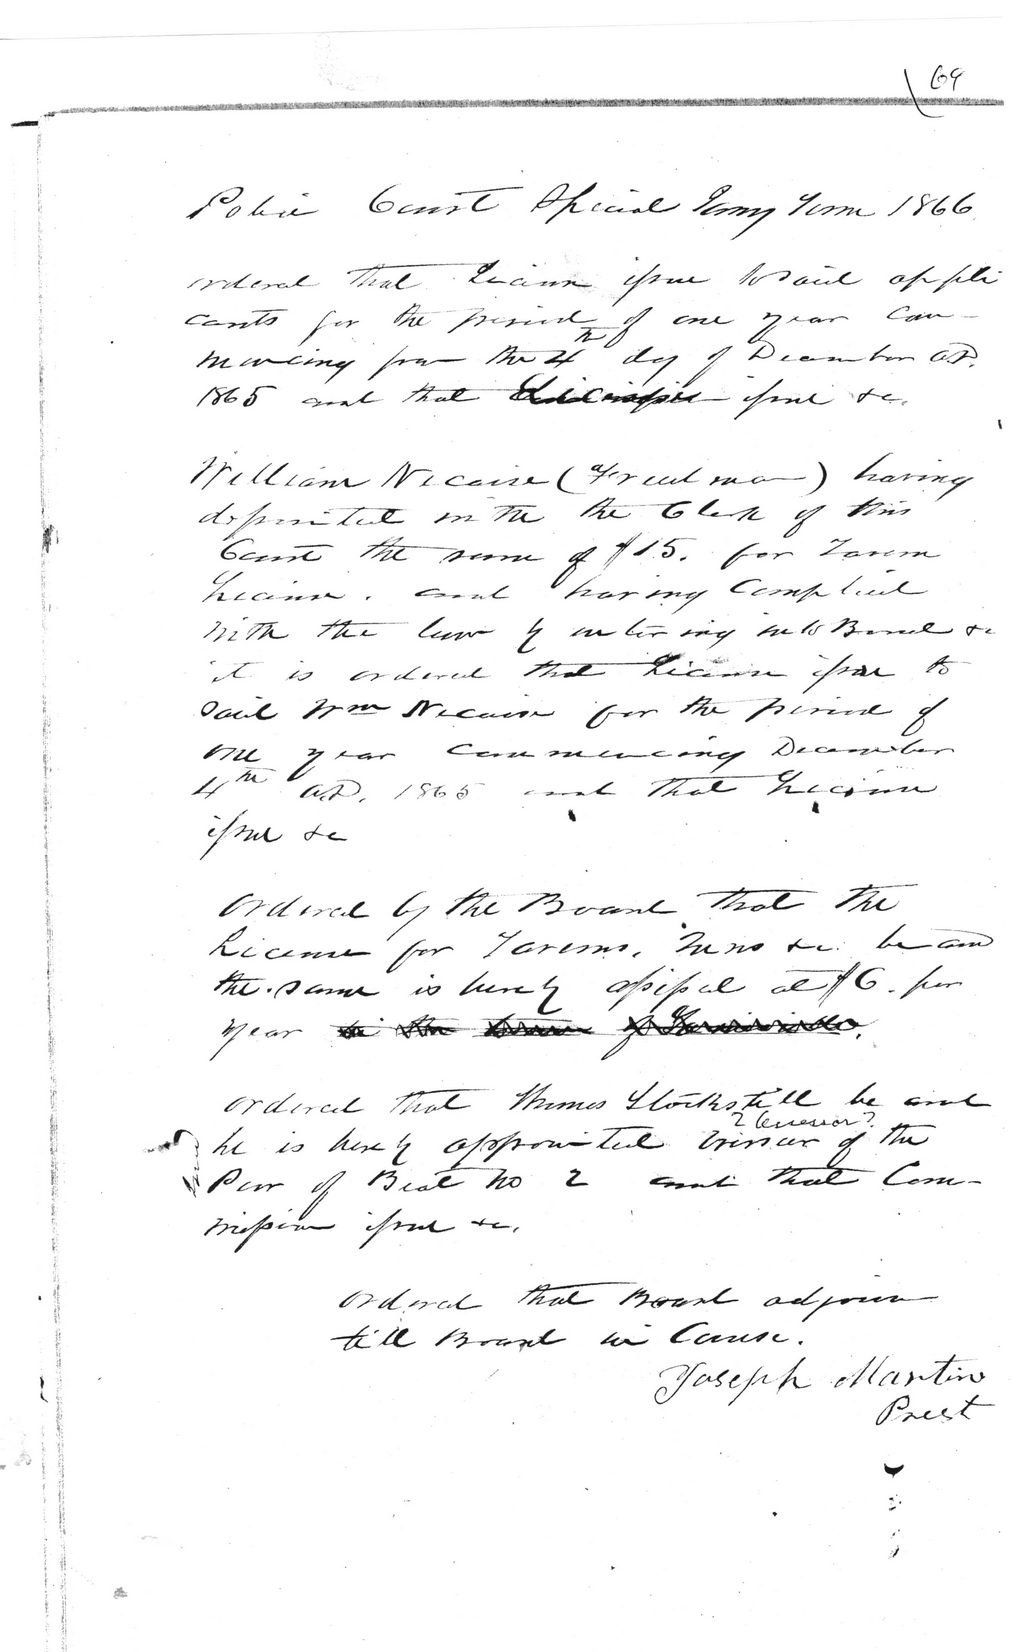 69
Police Court Special Jany Term 1866
ordered that License issue to said appli
cants for the period of one year Com-
mencing from the 4th day of December A.D.
1865 and that License issue &c.
William Necaise (Freedman) having
deposited with the Clerk of this
Court the sum of $15. for Tavern
License. and having Complied
with the law by entering into Bond &c
it is ordered that License issue to
said Wm Necaise for the period of
one year Commencing December
4th A.D. 1865 and that License
issue &c
Ordered by the Board that the
License for Taverns, Inns &c. be and
the same is hereby assessed at $6. per
year
Ordered that Thomas Stockstill be and
? Overseer ?
he is hereby appointed of the
Poor of Beat No 2 and that Com-
mission issue &c.
Ordered that Board adjourn
till Board in Course.
Joseph Martin
Prest